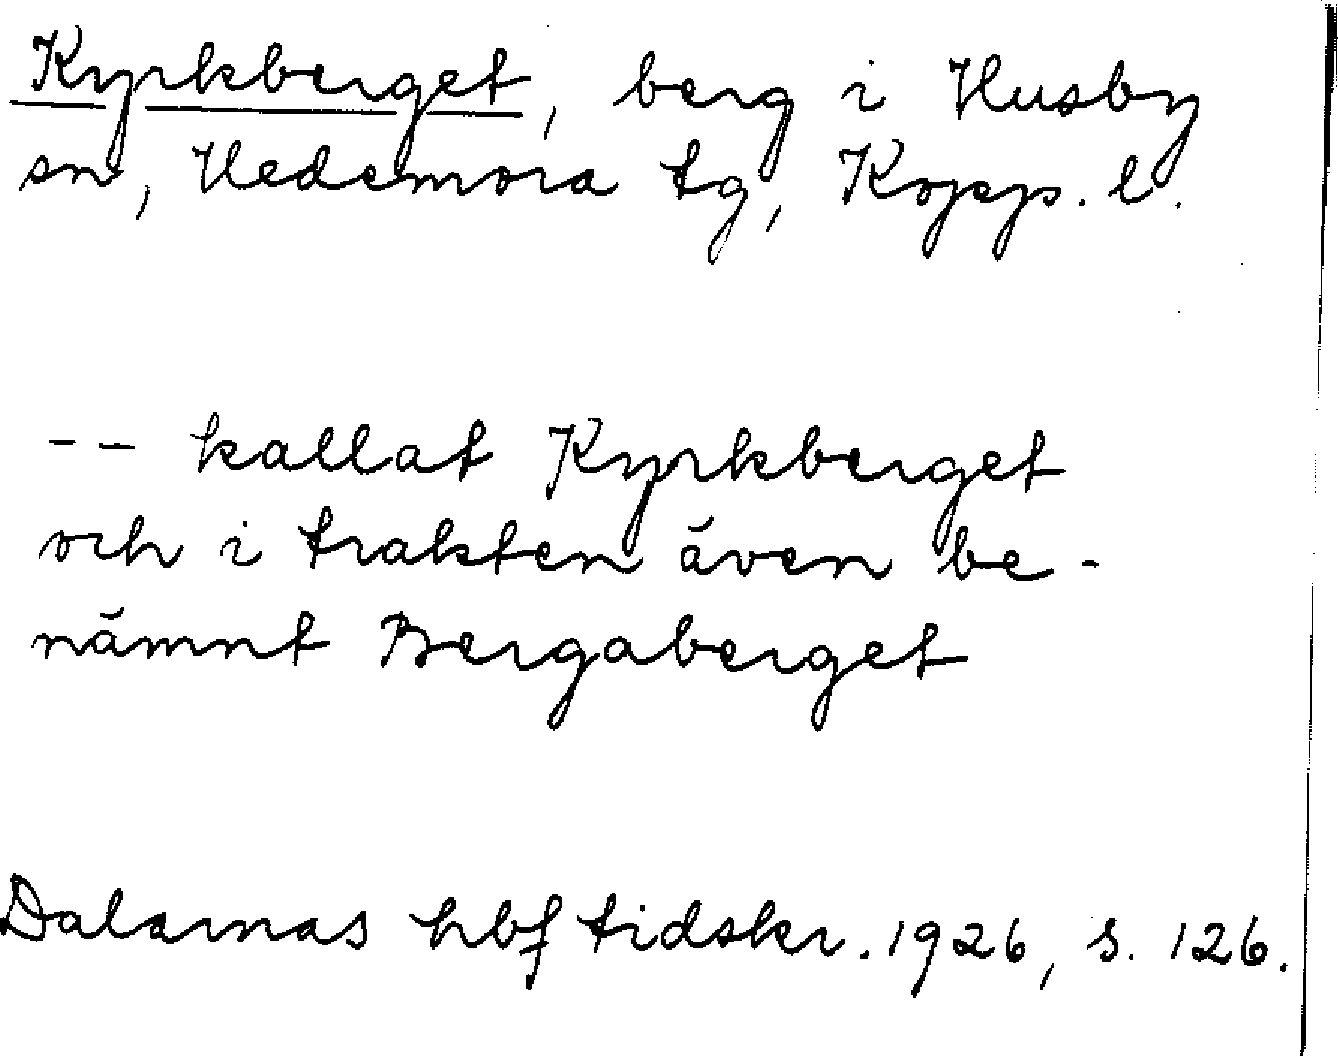 Kyrkberget, berg i Husby
sn, Hedemora tg, Kopp. l.
-- kallat Kyrkberget
och i trakten även be-
nämnt Bergaberget
Dalarnas hbf tidskr. 1926, s. 126.